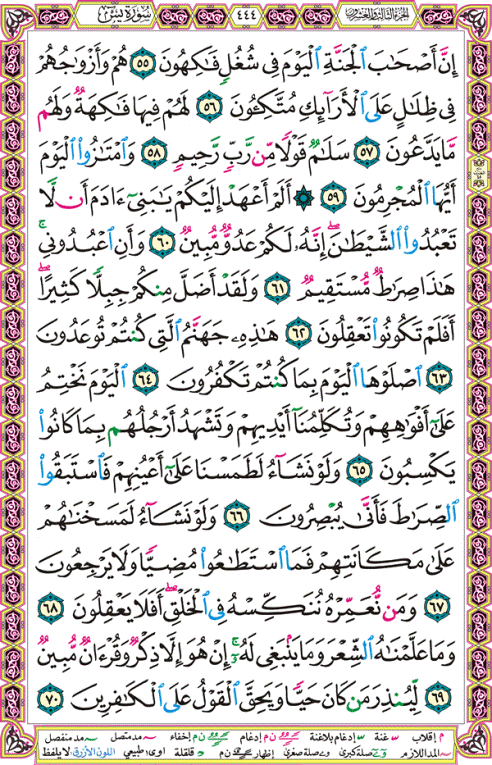 الجزء الثالث والعشرون
٤٤٤
سورة يس
إِنَّ أَصْحَٰبَ ٱلْجَنَّةِ ٱلْيَوْمَ فِى شُغُلٍ فَٰكِهُونَ ٥٥ هُمْ وَأَزْوَٰجُهُمْ
فِى ظِلَٰلٍ عَلَى ٱلْأَرَآئِكِ مُتَّكِـُٔونَ ٥٦ لَهُمْ فِيهَا فَٰكِهَةٌ وَلَهُم
مَّا يَدَّعُونَ ٥٧ سَلَٰمٌ قَوْلًا مِّن رَّبٍّ رَّحِيمٍ ٥٨ وَٱمْتَٰزُوا۟ ٱلْيَوْمَ
أَيُّهَا ٱلْمُجْرِمُونَ ٥٩ ۞ أَلَمْ أَعْهَدْ إِلَيْكُمْ يَٰبَنِىٓ ءَادَمَ أَن لَّا
تَعْبُدُوا۟ ٱلشَّيْطَٰنَ ۖ إِنَّهُۥ لَكُمْ عَدُوٌّ مُّبِينٌ ٦٠ وَأَنِ ٱعْبُدُونِى ۚ
هَٰذَا صِرَٰطٌ مُّسْتَقِيمٌ ٦١ وَلَقَدْ أَضَلَّ مِنكُمْ جِبِلًّا كَثِيرًا ۖ
أَفَلَمْ تَكُونُوا۟ تَعْقِلُونَ ٦٢ هَٰذِهِۦ جَهَنَّمُ ٱلَّتِى كُنتُمْ تُوعَدُونَ
٦٣ ٱصْلَوْهَا ٱلْيَوْمَ بِمَا كُنتُمْ تَكْفُرُونَ ٦٤ ٱلْيَوْمَ نَخْتِمُ
عَلَىٰٓ أَفْوَٰهِهِمْ وَتُكَلِّمُنَآ أَيْدِيهِمْ وَتَشْهَدُ أَرْجُلُهُم بِمَا كَانُوا۟
يَكْسِبُونَ ٦٥ وَلَوْ نَشَآءُ لَطَمَسْنَا عَلَىٰٓ أَعْيُنِهِمْ فَٱسْتَبَقُوا۟
ٱلصِّرَٰطَ فَأَنَّىٰ يُبْصِرُونَ ٦٦ وَلَوْ نَشَآءُ لَمَسَخْنَٰهُمْ
عَلَىٰ مَكَانَتِهِمْ فَمَا ٱسْتَطَٰعُوا۟ مُضِيًّا وَلَا يَرْجِعُونَ
٦٧ وَمَن نُّعَمِّرْهُ نُنَكِّسْهُ فِى ٱلْخَلْقِ ۖ أَفَلَا يَعْقِلُونَ ٦٨
وَمَا عَلَّمْنَٰهُ ٱلشِّعْرَ وَمَا يَنۢبَغِى لَهُۥٓ ۚ إِنْ هُوَ إِلَّا ذِكْرٌ وَقُرْءَانٌ مُّبِينٌ
٦٩ لِّيُنذِرَ مَن كَانَ حَيًّا وَيَحِقَّ ٱلْقَوْلُ عَلَى ٱلْكَٰفِرِينَ ٧٠